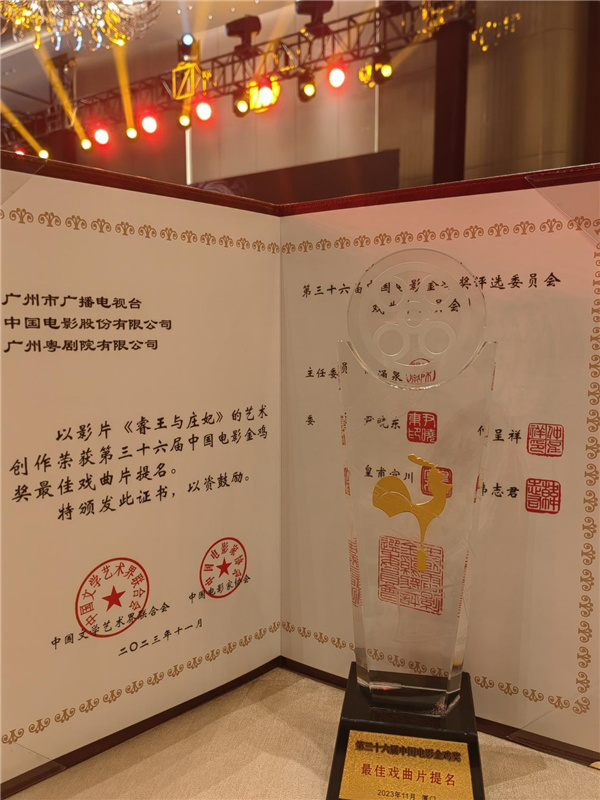 广州市广播电视台
中国电影股份有限公司
广州粤剧院有限公司
以影片《睿王与庄妃》的艺术
创作荣获第三十六届中国电影金鸡
奖最佳戏曲片提名。
特颁发此证书，以资鼓励。
中国文学艺术界联合会
中国电影家协会
中国文学艺术界联合会
中国电影家协会
二〇二三年十一月
第三十六届中国电影金 奖评选委员会
委员会
主任委员
委 尹晓东 呈祥
皇甫宜川 志君
第三十六届中国电影金鸡奖
最佳戏曲片提名
2023年11月 厦门